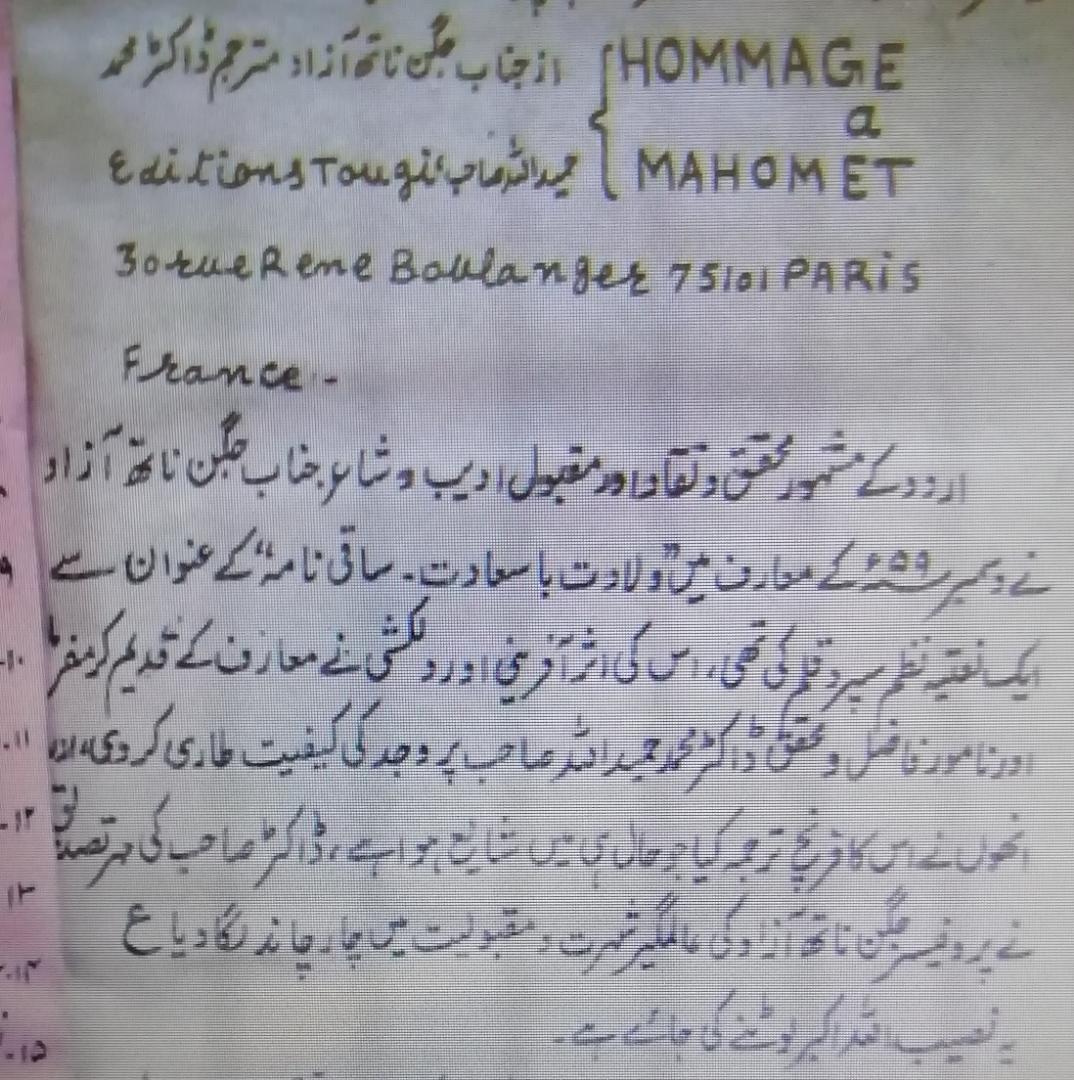 HOMMAGE
a
MAHOMET
از جناب جگن ناتھ آزاد مترجم ڈاکٹر محمد
حمید اللہ صاحب Editions Tougi
30 rue Rene Boulanger 75101 PARiS
France -
اردو کے مشہور محقق و نقاد اور مقبول ادیب و شاعر جناب جگن ناتھ آزاد
نے دسمبر کے معارف میں "ولادت با سعادت۔ ساقی نامہ" کے عنوان سے
ایک نعتیہ نظم سپرد قلم کی تھی، اس کی اثر آفرینی اور دلکشی نے معارف کے قدیم کرمفرما
اور نامور فاضل و محقق ڈاکٹر محمد حمید اللہ صاحب پر وجد کی کیفیت طاری کر دی، اور
انھوں نے اس کا فرنچ ترجمہ کیا جو حال ہی میں شایع ہوا ہے، ڈاکٹر صاحب کی مہر تصدیق
نے پروفیسر جگن ناتھ آزاد کی عالمگیر شہرت و مقبولیت میں چار چاند لگا دیا ع
یہ نصیب اللہ اکبر لوٹنے کی جائے ہے۔
۱۰۔
۱۱۔
۱۲۔
۱۳
۱۴۔
۱۵۔